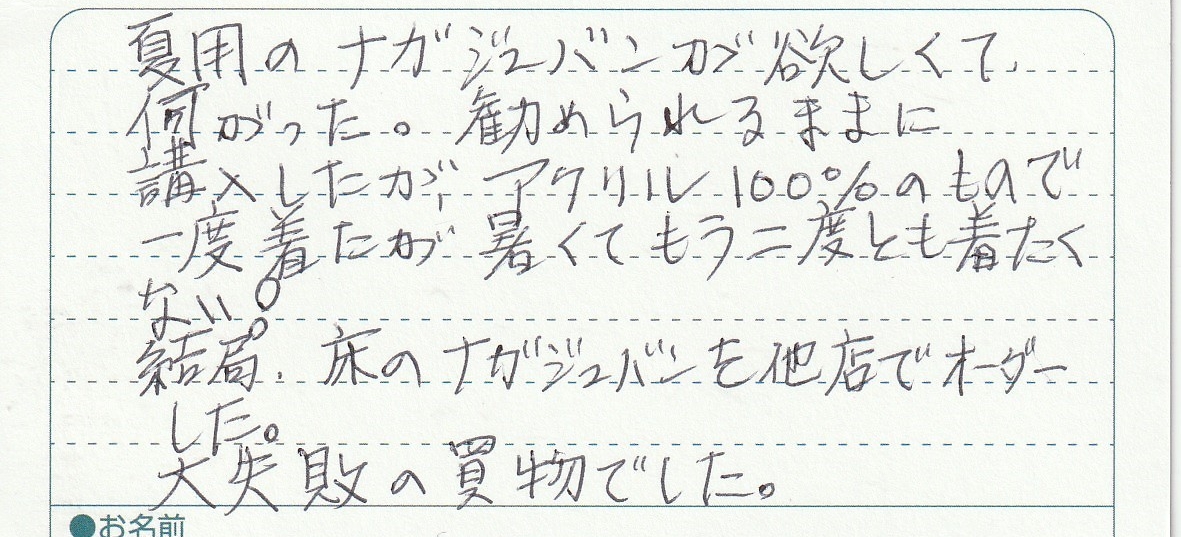 夏用のナガジュバンが欲しくて、
何がった。勧められるままに
講入したが、アクリル100%のもので
一度着たが暑くてもう二度とも着たく
ない。
結局、床のナガジュバンを他店でオーダー
した。
大失敗の買物でした。
●お名前